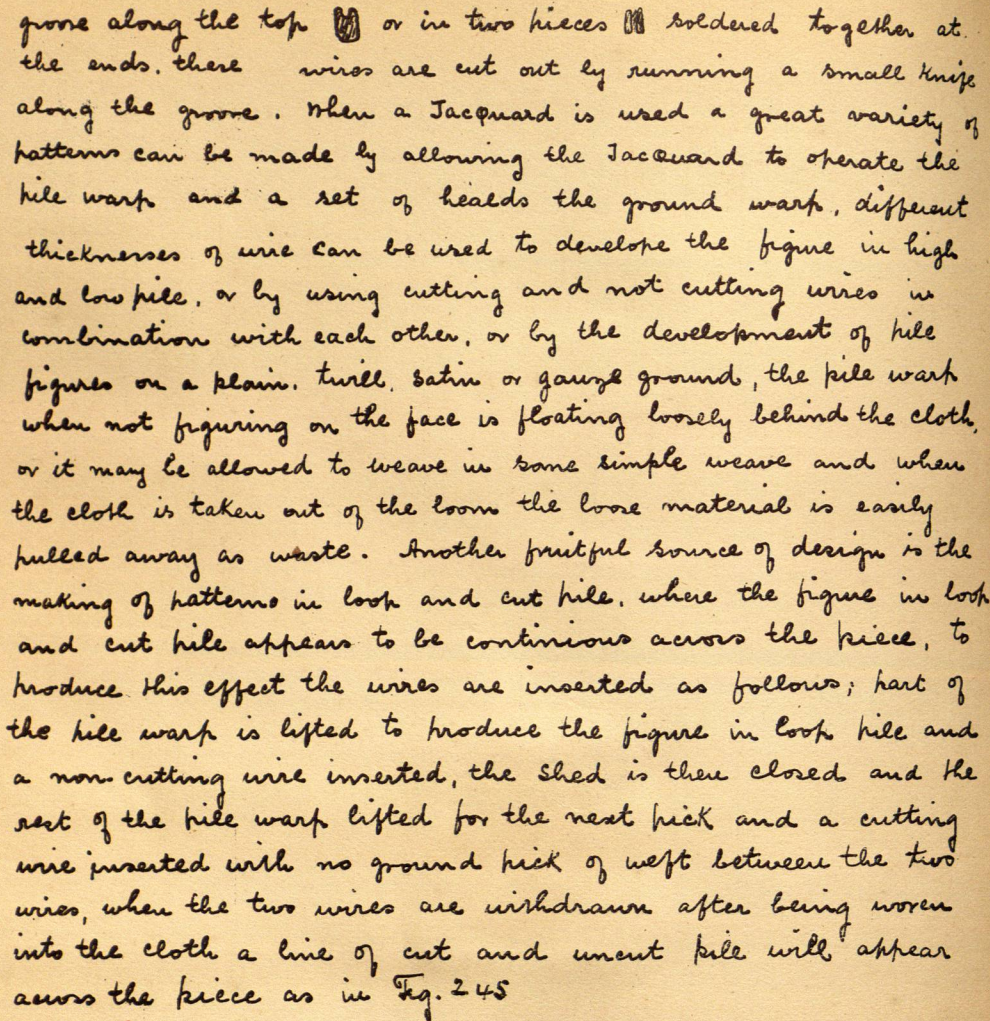 groove along the top or in two pieces soldered together at
the ends. these wires are cut out by running a small knife
along the groove. When a Jacquard is used a great variety of
patterns can be made by allowing the Jacquard to operate the
pile warp and a set of healds the ground warp, different
thicknesses of wire can be used to develope the figure in high
and low pile, or by using cutting and not cutting wires in
combination with each other, or by the development of pile
figures on a plain, twill, satin or gauze ground, the pile warp
when not figuring on the face is floating loosely behind the cloth,
or it may be allowed to weave in some simple weave and when
the cloth is taken out of the loom the loose material is easily
pulled away as waste. Another fruitful source of design is the
making of patterns in loop and cut pile, where the figure in loop
and cut pile appears to be continious across the piece, to
produce this effect the wires are inserted as follows; part of
the pile warp is lifted to produce the figure in loop pile and
a non-cutting wire inserted, the shed is then closed and the
rest of the pile warp lifted for the next pick and a cutting
wire inserted with no ground pick of weft between the two
wires, when the two wires are withdrawn after being woven
into the cloth a line of cut and uncut pile will appear
across the piece as in Fig. 245